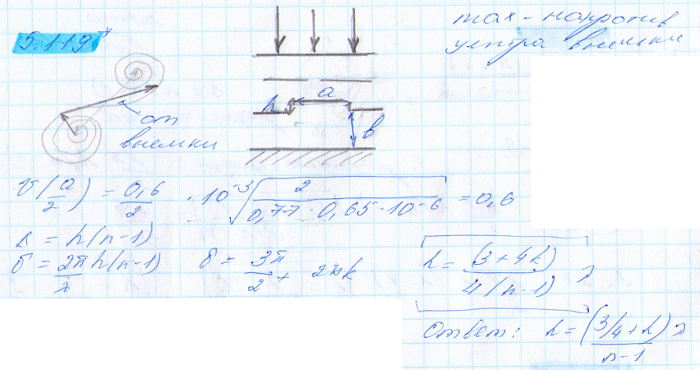 5.119*
max - напротив
центра выемки
h
a
b
от
выемки
v(a/2) = 0,6/2 · 10⁻³ √(2/(0,77 · 0,65 · 10⁻⁶)) = 0,6
Δ = h(n-1)
δ = 2π/λ h(n-1) δ = 3π/2 + 2πk h = (3+4k)/(4(n-1)) λ
Ответ: h = (3/4+k)/(n-1) λ